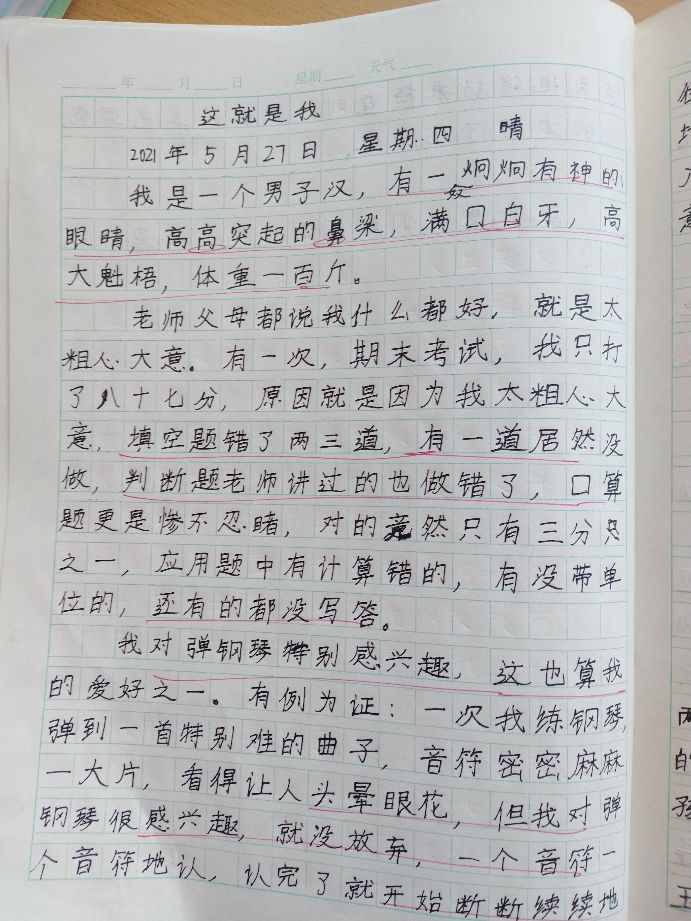 年 月 日 星期 天气
这就是我
2021年5月27日 星期四 晴
我是一个男子汉，有一双炯炯有神的
眼睛，高高突起的鼻梁，满口白牙，高
大魁梧，体重一百斤。
老师父母都说我什么都好，就是太
粗心大意。有一次，期末考试，我只打
了八十七分，原因就是因为我太粗心大
意，填空题错了两三道，有一道居然没
做，判断题老师讲过的也做错了，口算
题更是惨不忍睹，对的竟然只有三分
之一，应用题中有计算错的，有没带单
位的，还有的都没写答。
我对弹钢琴特别感兴趣，这也算我
的爱好之一。有例为证：一次我练钢琴，
弹到一首特别难的曲子，音符密密麻麻
一大片，看得让人头晕眼花，但我对弹
钢琴很感兴趣，就没放弃，一个音符一
个音符地认，认完了就开始断断续续地